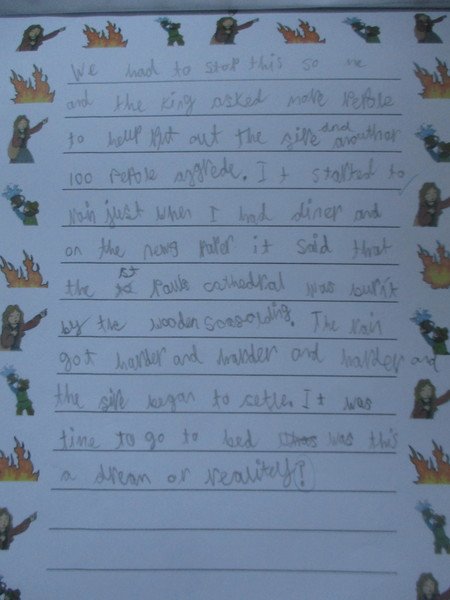 We had to stop this so me
and the king asked more Pepole
to hellp Put out the fire and anouther
100 Pepole aggrede. It started to
rain just when I had diner and
on the news Paper it said that
the st Pauls cathedral was burnt
by the wooden
The rain
got harder and harder and harder and
the fire began to settle. It was
time to go to bed was this
a dream or reality?